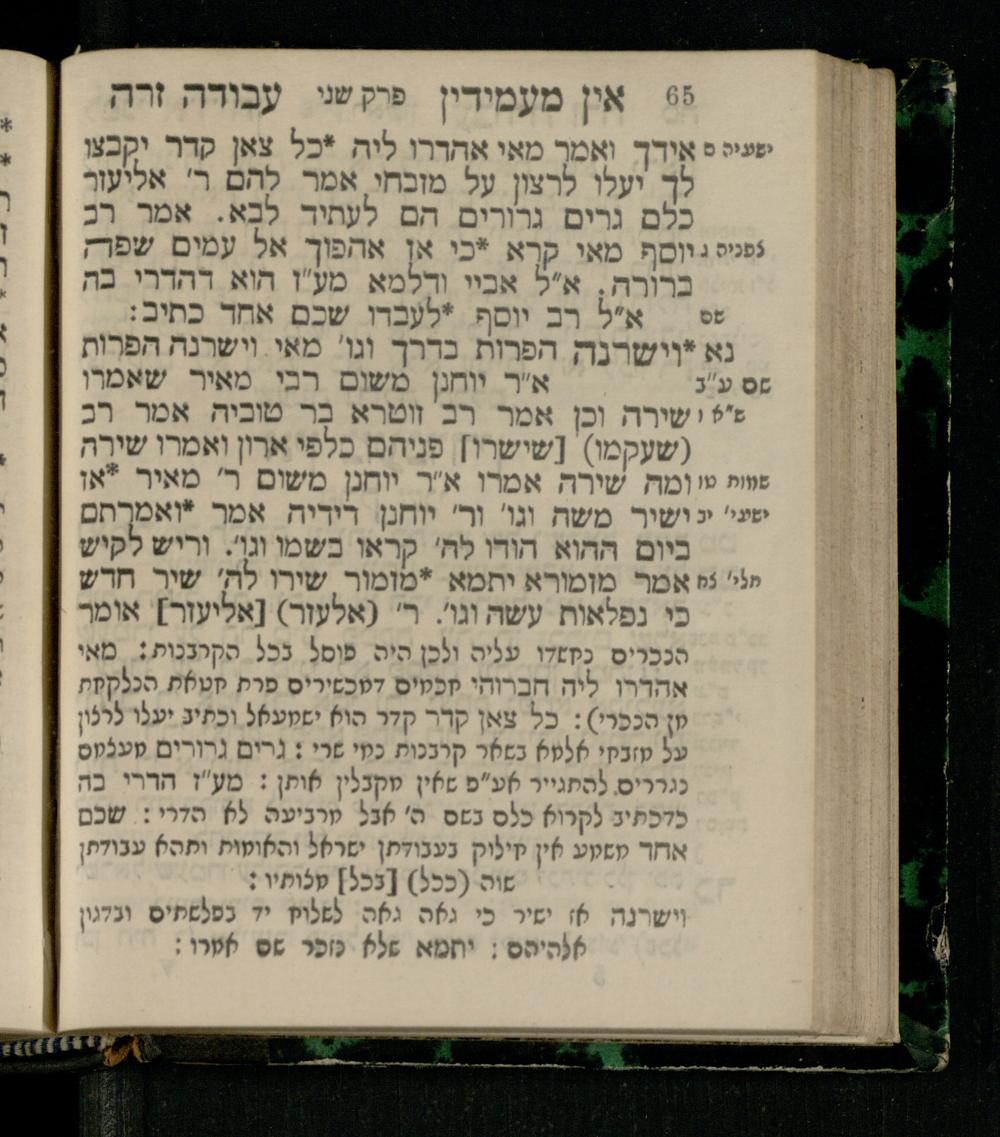 65 אין מעמידין פרק שני עבודה זרה
ישעיה ס אידך ואמר מאי אהדרו ליה *כל צאן קדר יקבצו
לך יעלו לרצון על מזבחי אמר להם ר' אליעזר
כלם גרים גרורים הם לעתיד לבא. אמר רב
צפניה ג יוסף מאי קרא *כי אז אהפוך אל עמים שפה
ברורה. א"ל אביי ודלמא מע"ז הוא דהדרי בה
שם א"ל רב יוסף *לעבדו שכם אחד כתיב:
נא *וישרנה הפרות בדרך וגו' מאי וישרנה הפרות
שם ע"ב א"ר יוחנן משום רבי מאיר שאמרו
ש"א ו שירה וכן אמר רב זוטרא בר טוביה אמר רב
(שעקמו) [שישרו] פניהם כלפי ארון ואמרו שירה
שמות טו ומה שירה אמרו א"ר יוחנן משום ר' מאיר *אז
ישעי' יב ישיר משה וגו' ור' יוחנן דידיה אמר *ואמרתם
ביום ההוא הודו לה' קראו בשמו וגו'. וריש לקיש
תלי' צח אמר מזמורא יתמא *מזמור שירו לה' שיר חדש
כי נפלאות עשה וגו'. ר' (אלעזר) [אליעזר] אומר
הנכרים נחשדו עליה ולכן היה פוסל בכל הקרבנות: מאי
אהדרו ליה חברוהי חכמים דמכשירים פרת חטאת הנלקחת
מן הנכרי): כל צאן קדר קדר הוא ישמעאל וכתיב יעלו לרצון
על מזבחי אלמא בשאר קרבנות נמי שרי: גרים גרורים מעצמם
נגררים להתגייר אע"פ שאין מקבלין אותן: מע"ז הדרי בה
כדכתיב לקרוא כלם בשם ה' אבל מרביעה לא הדרי: שכם
אחד משמע אין חילוק בעבודתן ישראל והאומות ותהא עבודתן
שוה (ככל) [בכל] מצותיו:
וישרנה אז ישיר כי גאה גאה לשלוח יד בפלשתים ובדגון
אלהיהם: יתמא שלא נזכר שם אמרו: